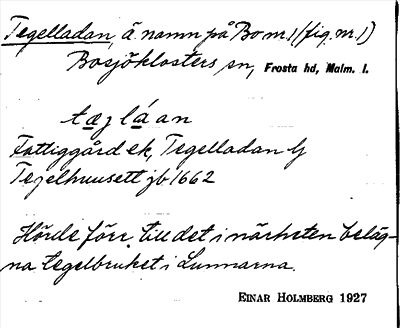 Tegelladan, ä. namn på Bo m. 1 (fig. nr. 1)
Bosjöklosters sn, Frosta hd, Malm. l.
tæglaan
Fattiggård ek, Tegelladan
Tegelhuusett jb 1662
Hörde förr till det i närheten beläg-
na tegelbruket i Lunnarna.
EINAR HOLMBERG 1927